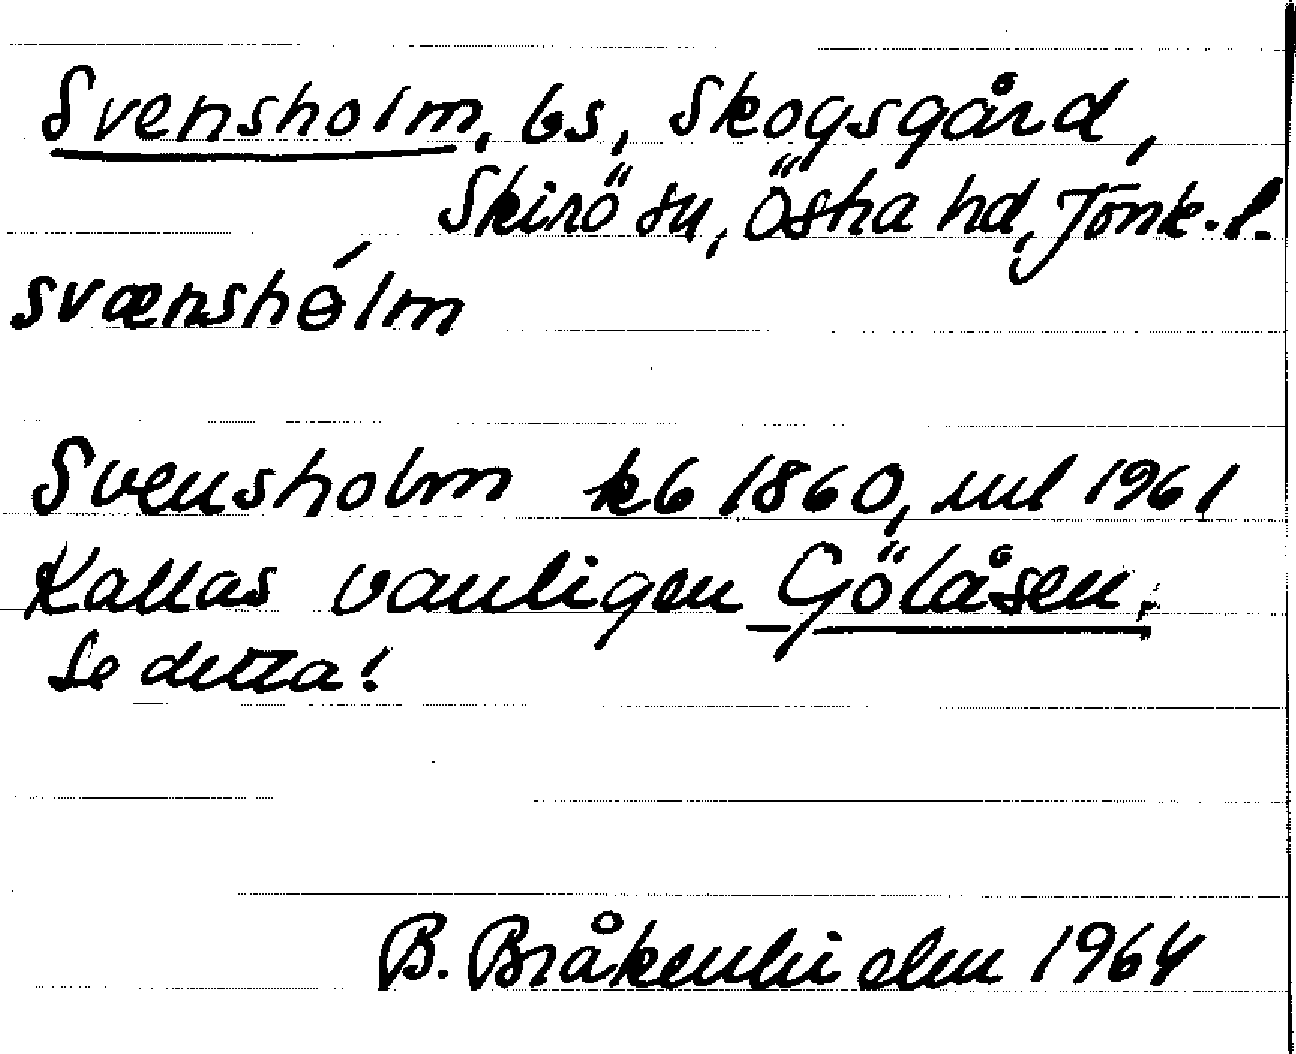 Svensholm, bs, Skogsgård,
Skirö sn, Östra hd, Jönk. l.
svænshɵ́lm
Svensholm kb 1860, uul 1961
Kallas vanligen Gölåsen.
Se detta!
B. Bråkenhielm 1964